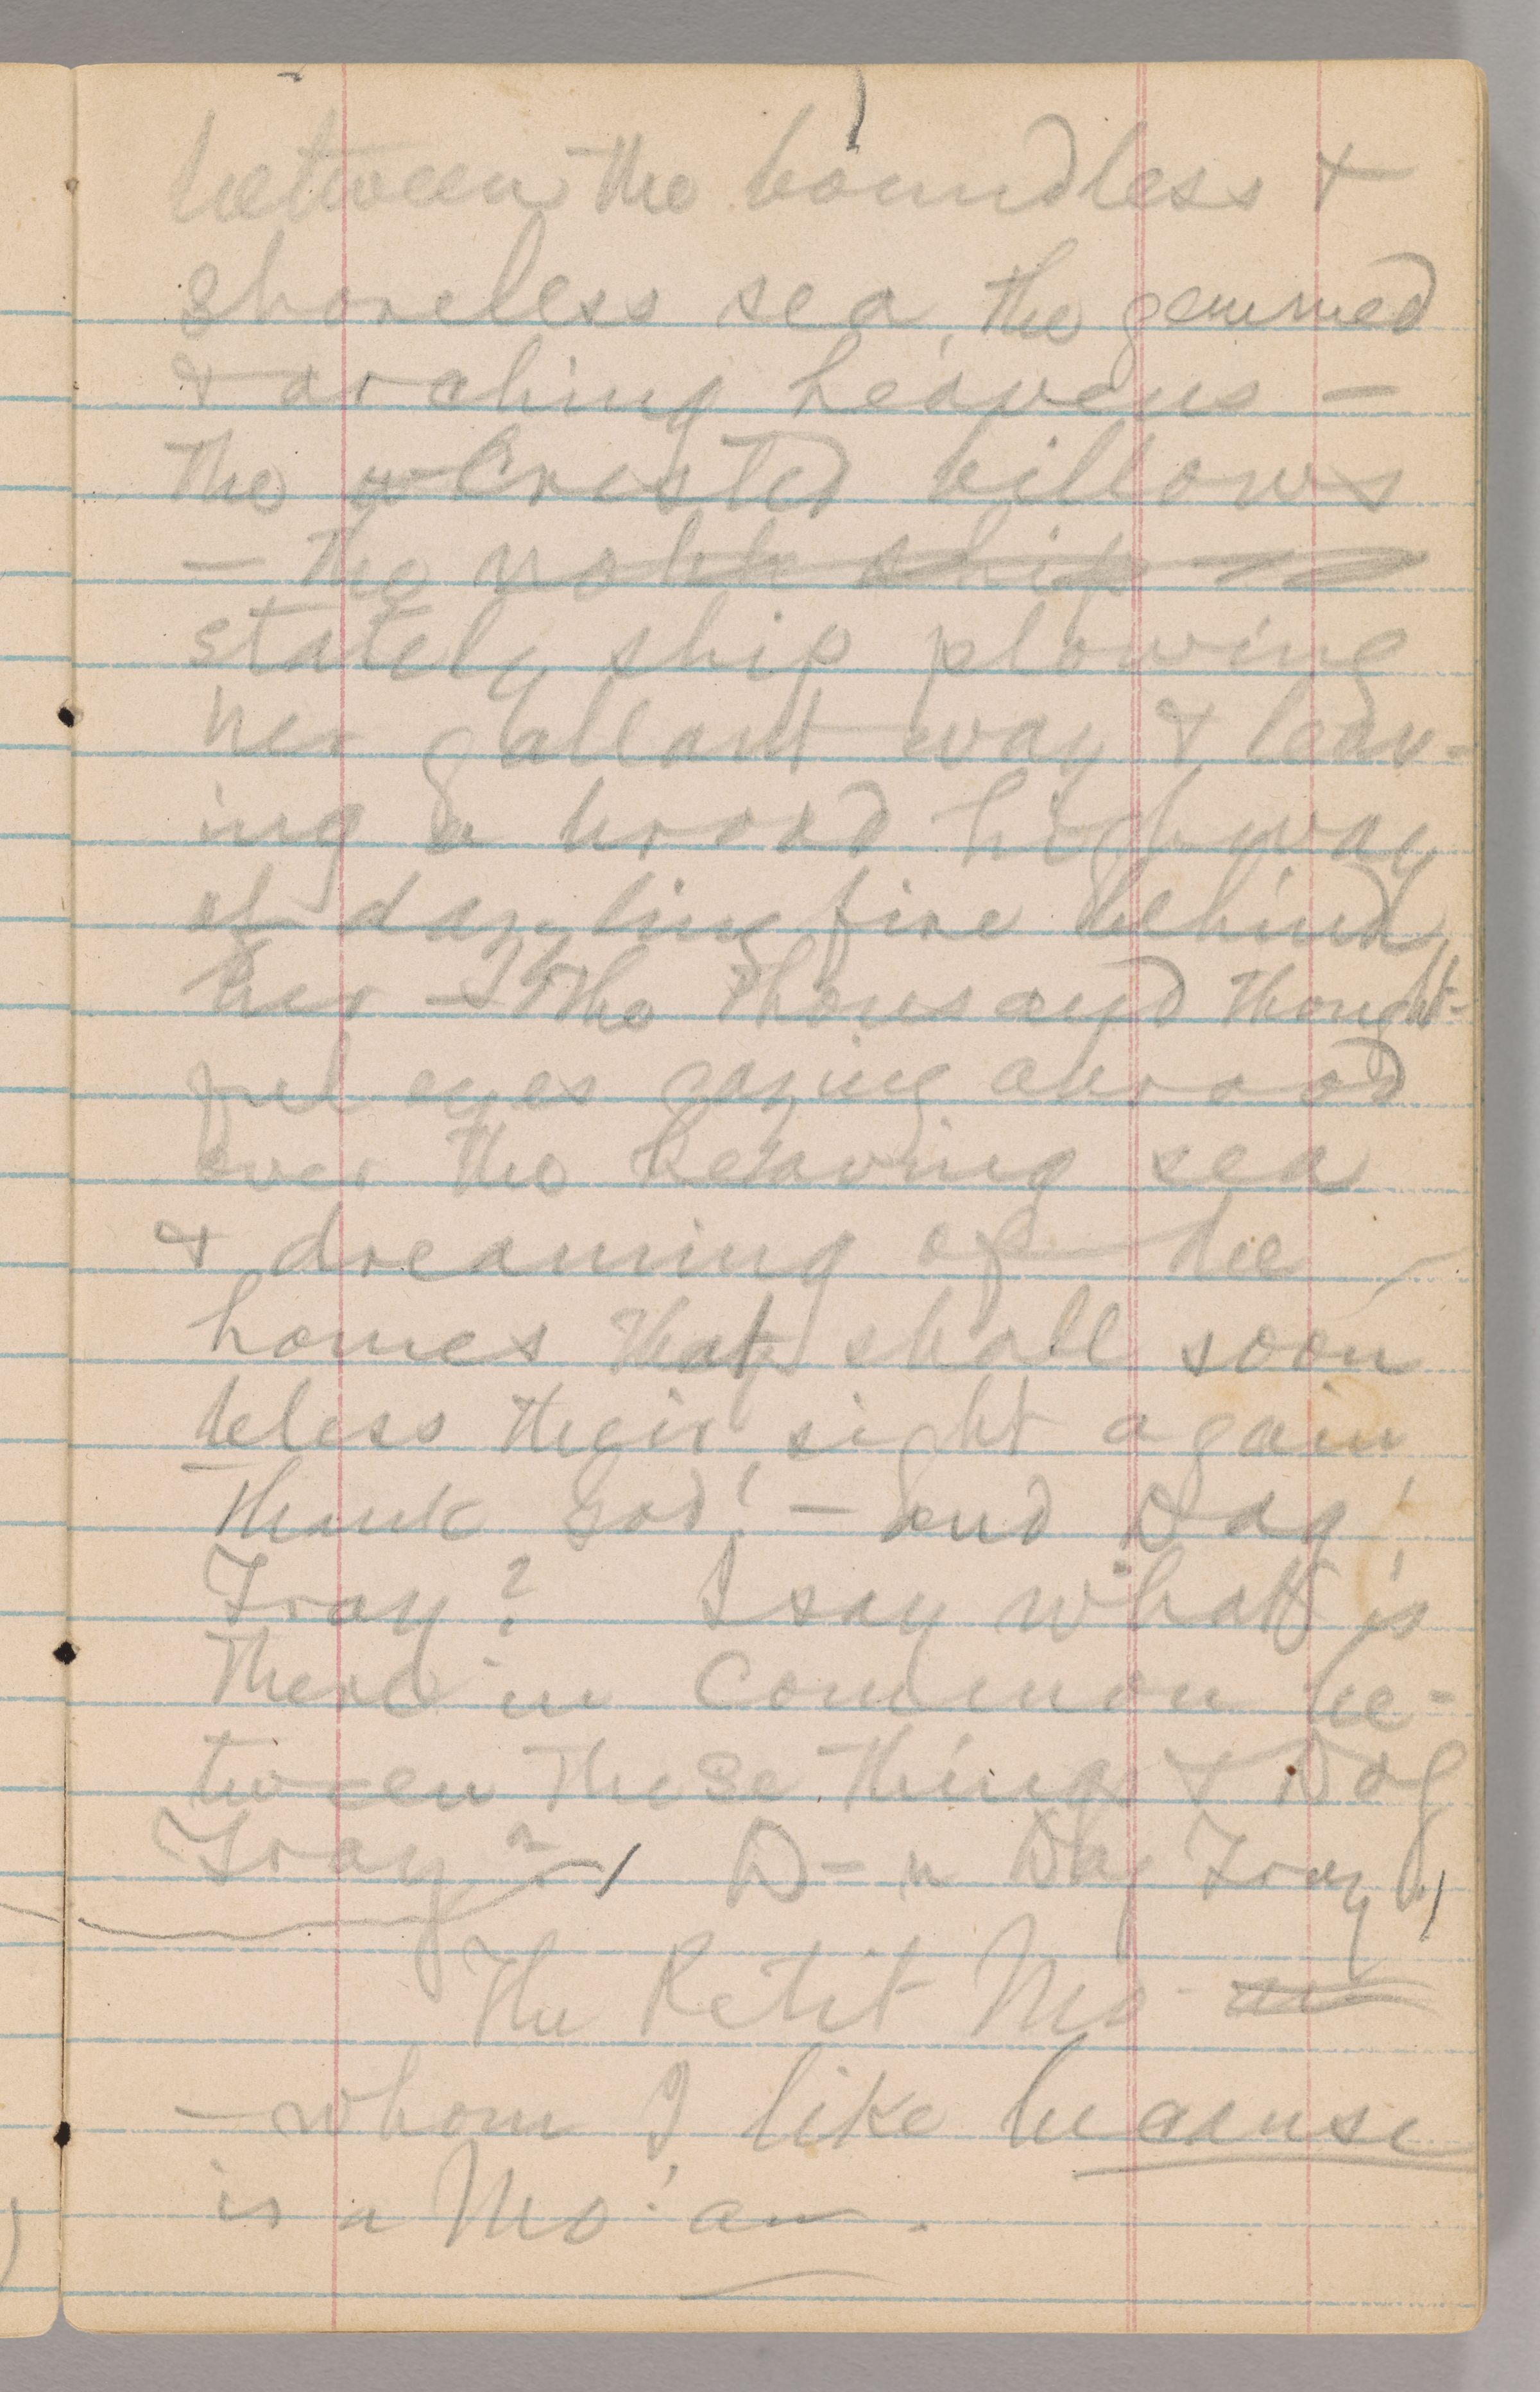 between the boundless &
shoreless sea, the gemmed
& arching heavens —
the crested billows
— the noble ship
stately ship plowing
her gallant way & leav-
ing a broad highway
of dazzling fire behind
her — the thousand thought-
ful eyes gazing abroad
over the heaving sea
& dreaming of the
homes that shall soon
bless their sight again,
thank God! — and Dog
Tray? I say what is
there in common be-
tween these things & Dog
Tray? D—n Dog Tray!
The Petit Mo-
— whom I like because
is a Mo'an.